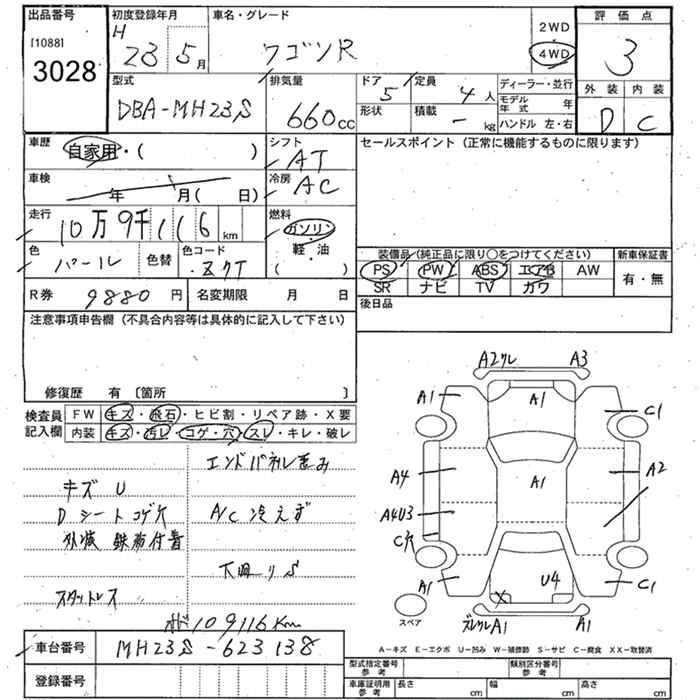 出品番号 初度登録年月 車名・グレード 評価点
[1088] 3028
H 23年 5月 ワゴンR
2WD
4WD
3
型式 排気量 ドア 定員 ディーラー・並行 外装 内装
DBA-MH23S 660cc 5 4人
モデル年式 年
形状 積載 - kg ハンドル 左・右
D C
車歴 自家用・( ) シフト AT
セールスポイント(正常に機能するものに限ります)
車検 年 月( 日) 冷房 AC
走行 10万9千116km 燃料 ガソリン・軽・油 ( )
色 パール 色替 色コード
装備品(純正品に限り○をつけてください) 新車保証書
PS PW ABS エアB AW 有・無
SR ナビ TV カワ
R券 9880円 名変期限 月 日
後日品
注意事項申告欄(不具合内容等は具体的に記入して下さい)
修復歴 有〔箇所 〕
検査員記入欄
FW キズ・飛石・ヒビ割・リペア跡・X要
内装 キズ・汚レ・コゲ・穴・スレ・キレ・破レ
エンドパネル歪み
キズ U
Dシートコゲ穴 A/C 冷えず
下廻りS
スタットレス
109116Km
車台番号 MH23S-623138
登録番号
A2クレ A3
A1 A1 C1
A4 A1 A2
A4U3
C穴
A1 X U4 C1
A1
スペア
A-キズ E-エクボ U-凹み W-補修跡 S-サビ C-腐食 XX-取替済
型式指定番号 参考 類別区分番号 参考
車庫証明用 参考 長さ cm 幅 cm 高さ cm